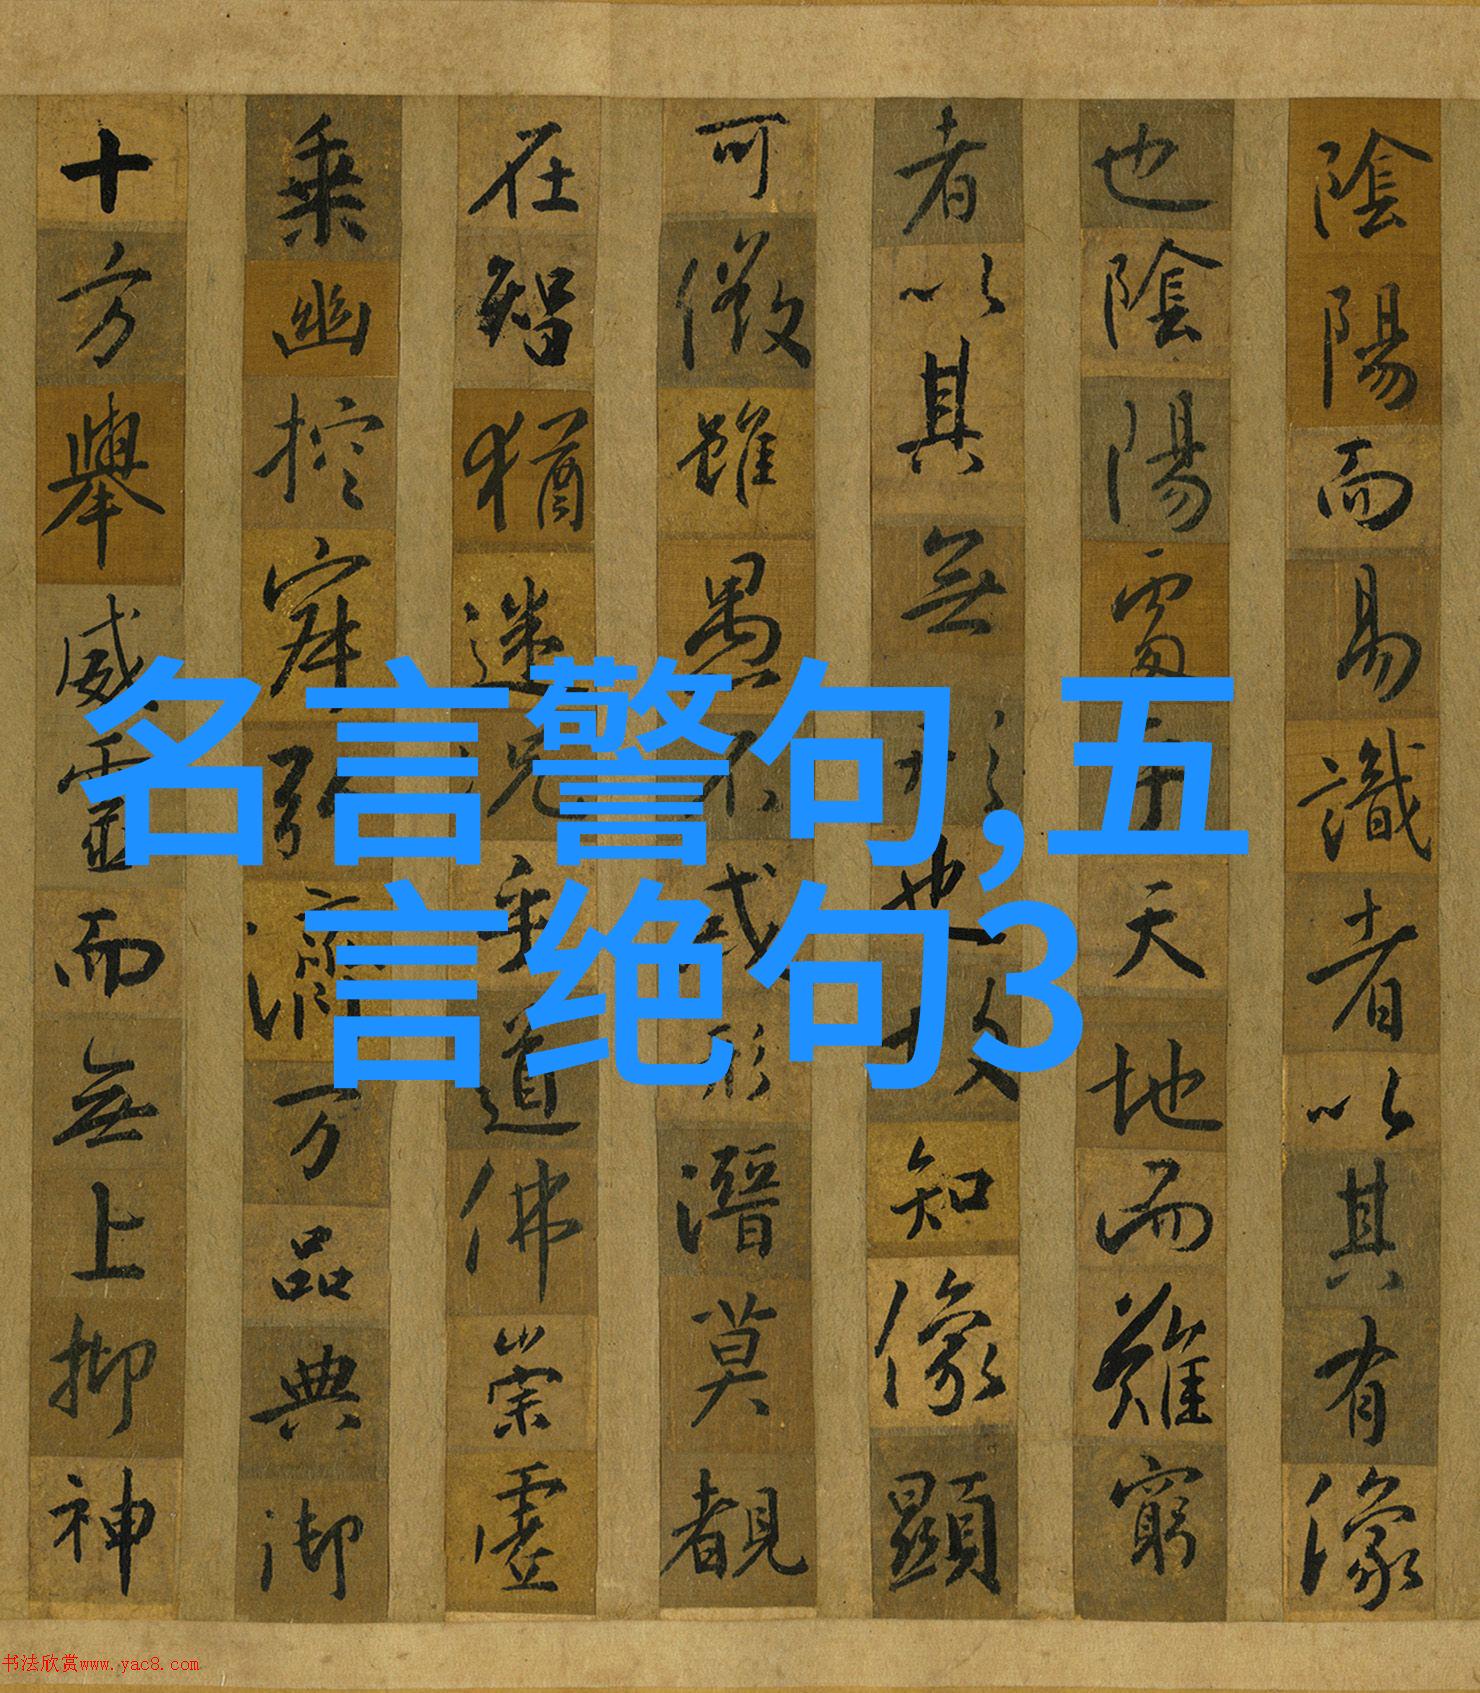 陰陽而易識者以其有像
也陰陽處乎天地而難窮
者以其無形也故知像顯
可徵雖愚不惑形潛莫覩
在智猶迷況乎道佛崇虛
乘幽控寂弘濟万品典御
十方舉威靈而無上抑神
名言警句,五
言绝句3
书法欣赏www.yac8.com